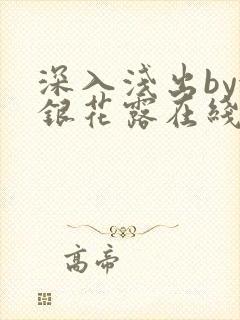 深入浅出by
銀花露在线
高帝